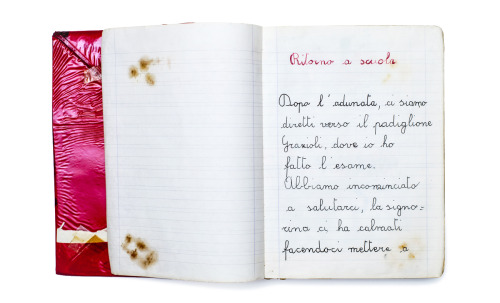 Ritorno a scuola
Dopo l'adunata, ci siamo
diretti verso il padiglione
Grazioli, dove io ho
fatto l'esame.
Abbiamo incominciato
a salutarci, la signo=
rina ci ha calmati
facendoci mettere a